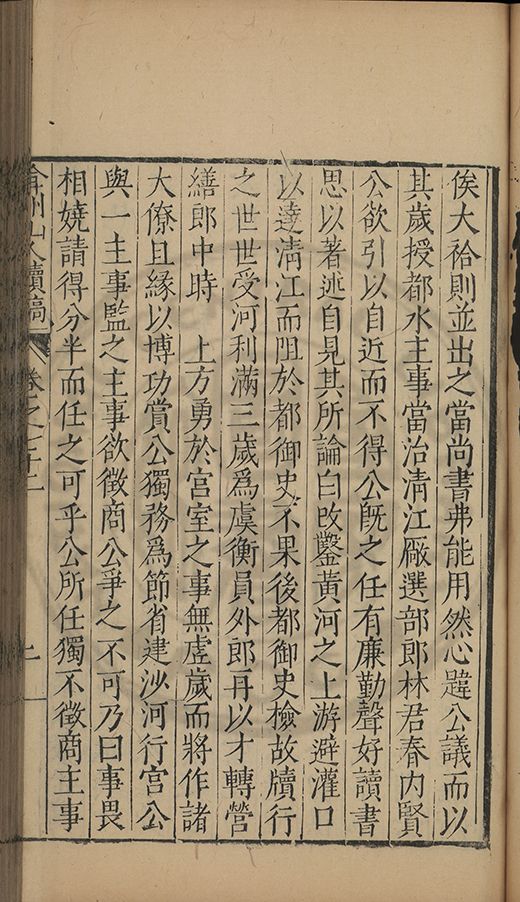 俟大祫則並出之當尚書弗能用然心韙公議而以
其歲授都水主事當治清江廠選部郎林君春內賢
公欲引以自近而不得公旣之任有廉勤聲好讀書
思以著述自見其所論白改鑿黃河之上游避灌口
以達淸江而阻於都御史不果後都御史檢故牘行
之世世受河利滿三歲爲虞衡員外郎再以才轉營
繕郎中時　上方勇於宮室之事無虛歲而將作諸
大僚且緣以博功賞公獨務爲節省建沙河行宮公
與一主事監之主事欲徵商公爭之不可乃曰事畏
相嬈請得分半而任之可乎公所任獨不徵商主事
弇州山人續稿 卷之七十二